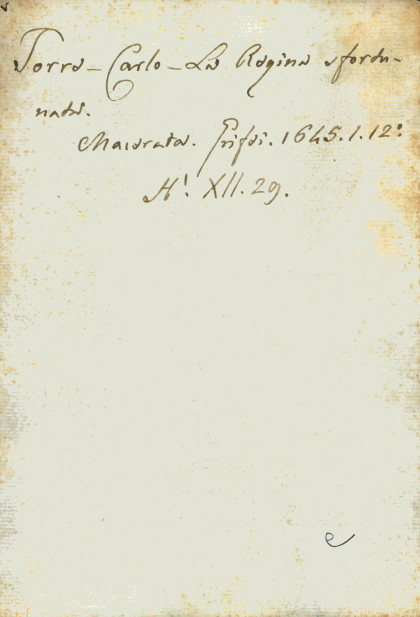 Torre - Carlo - La Regina sfortu-
nata.
Macerata. Grifei. 1645. 1. 12º
H'. XII. 29.
e